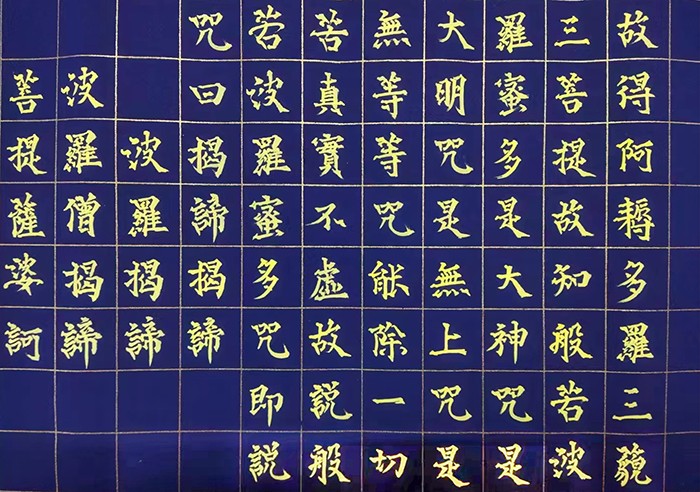 故得阿耨多羅三藐
三菩提故知般若波
羅蜜多是大神咒是
大明咒是無上咒是
無等等咒能除一切
苦真實不虛故説般
若波羅蜜多咒即説
咒曰揭諦揭諦
波羅揭諦
波羅僧揭諦
菩提薩婆訶